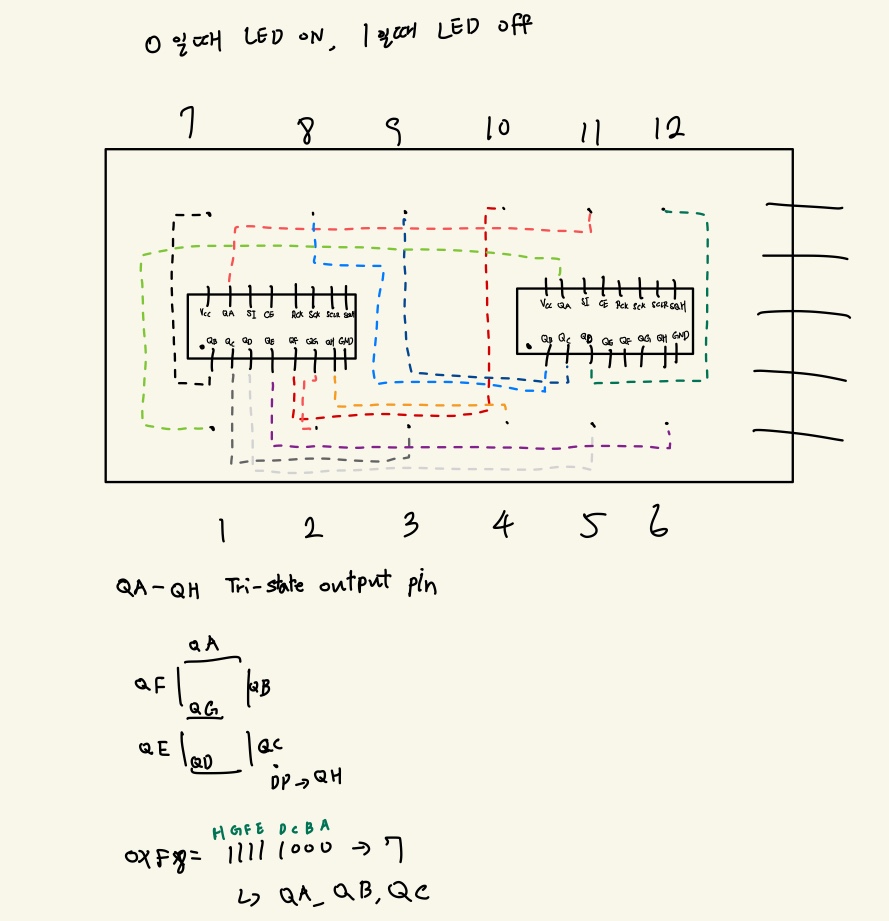 0 일때 LED ON, 1일때 LED off
7 8 9 10 11 12
Vcc QA SI CE RCK SCK SCLR SQH
QB QC QD QE QF QG QH GND
Vcc QA SI CE RCK SCK SCLR SQH
QB QC QD QE QF QG QH GND
1 2 3 4 5 6
QA-QH Tri-state output pin
QA
QF QB
QG
QE QC
QD
DP→QH
H G F E D C B A
0xF8= 1111 1000 → 7
↳ QA, QB, QC